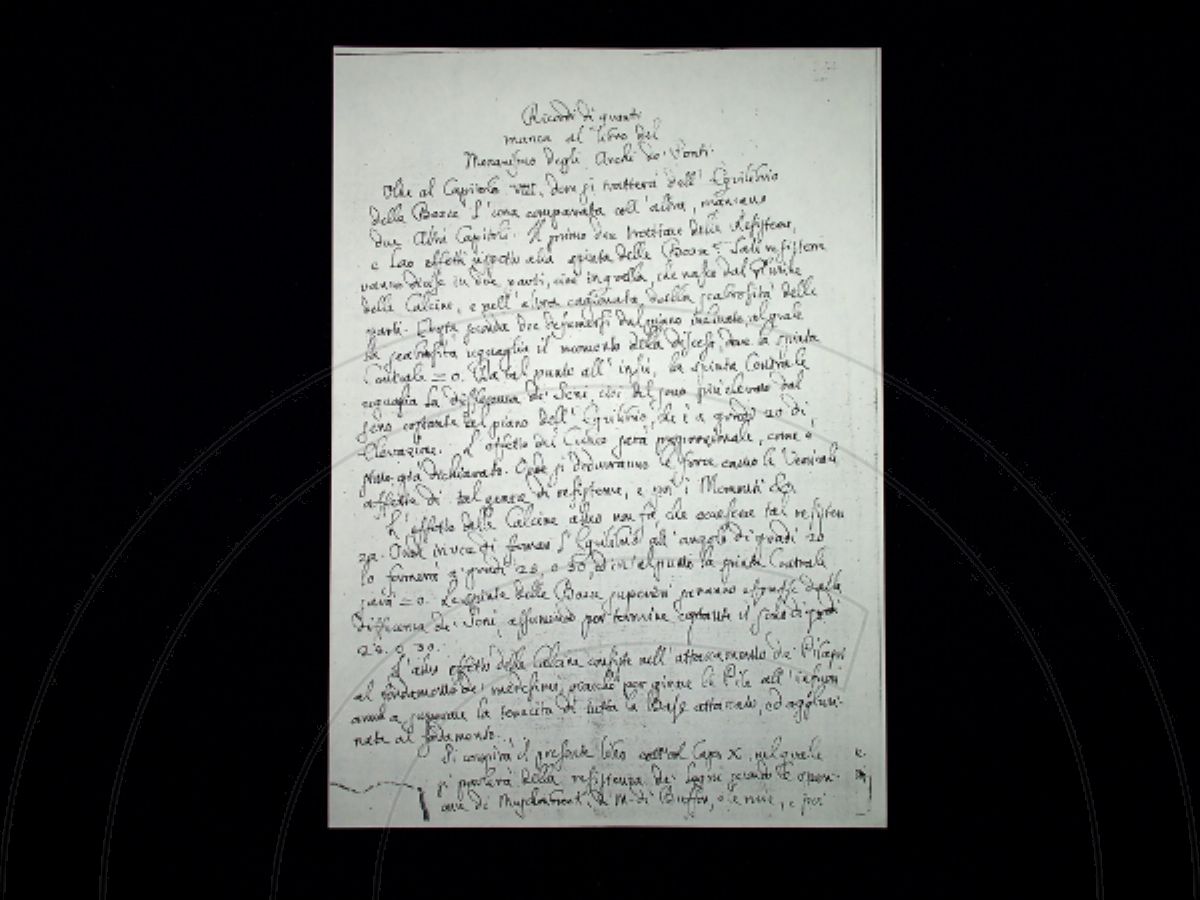 Ricordi di quanto
manca al libro del
Mecanismo degli Archi de' Ponti.
Oltre al Capitolo VIII, dove si tratterà dell' Equilibrio
della Bozze l'una comparata coll' altra, mancano
due Altri Capitoli. Il primo dee trattare delle Resistenze,
e loro effetti rispetto alla spinta delle Bozze. Tali resistenze
vanno divise in due parti, cioè in quella, che nasce dal
della Calcina, e nell' altra cagionata dalla scabrosità delle
parti. Questa seconda dee desumersi dal piano inclinato, al quale
la scabrosità uguaglia il momento della discesa, dove la spinta
Centrale = 0. Da tal punto all' insù, la spinta Centrale
uguaglia la differenza de' Seni, cioè del seno più elevato dal
seno costante del piano dell' Equilibrio, che è a gradi 20 di
Elevazione. L' effetto del Cuneo sarà proporzionale, come è
stato già dichiarato. Onde si ridurranno le forze contro le Verticali
affette di tal genere di resistenze, e poi i Momenti
L' effetto della Calcina altro non fa, che accrescere tal resisten
za. Onde invece di formar l' Equilibrio all' angolo di gradi 20
lo formerà a gradi 28, o 30, ed in tal punto la spinta Centrale
sarà = 0. Le spinte delle Bozze superiori saranno espresse dalla
differenza de' Seni, assumendo per termine costante il seno di gradi
28. o 30.
L' altro effetto della Calcina consiste nell' attaccamento de' Pilastri
al fondamento de' medesimi, perché per girare le Pile all' infuori
anno a superare la tenacità di tutta la Base attaccata, ed agglutin-
nata al fondamento.
Si compirà il presente libro coll' Capo X, nel quale
si parlerà della resistenza de' Legni secondo le sperien-
ze di Musschenbroek, di M. di Buffon, e le mie, e poi